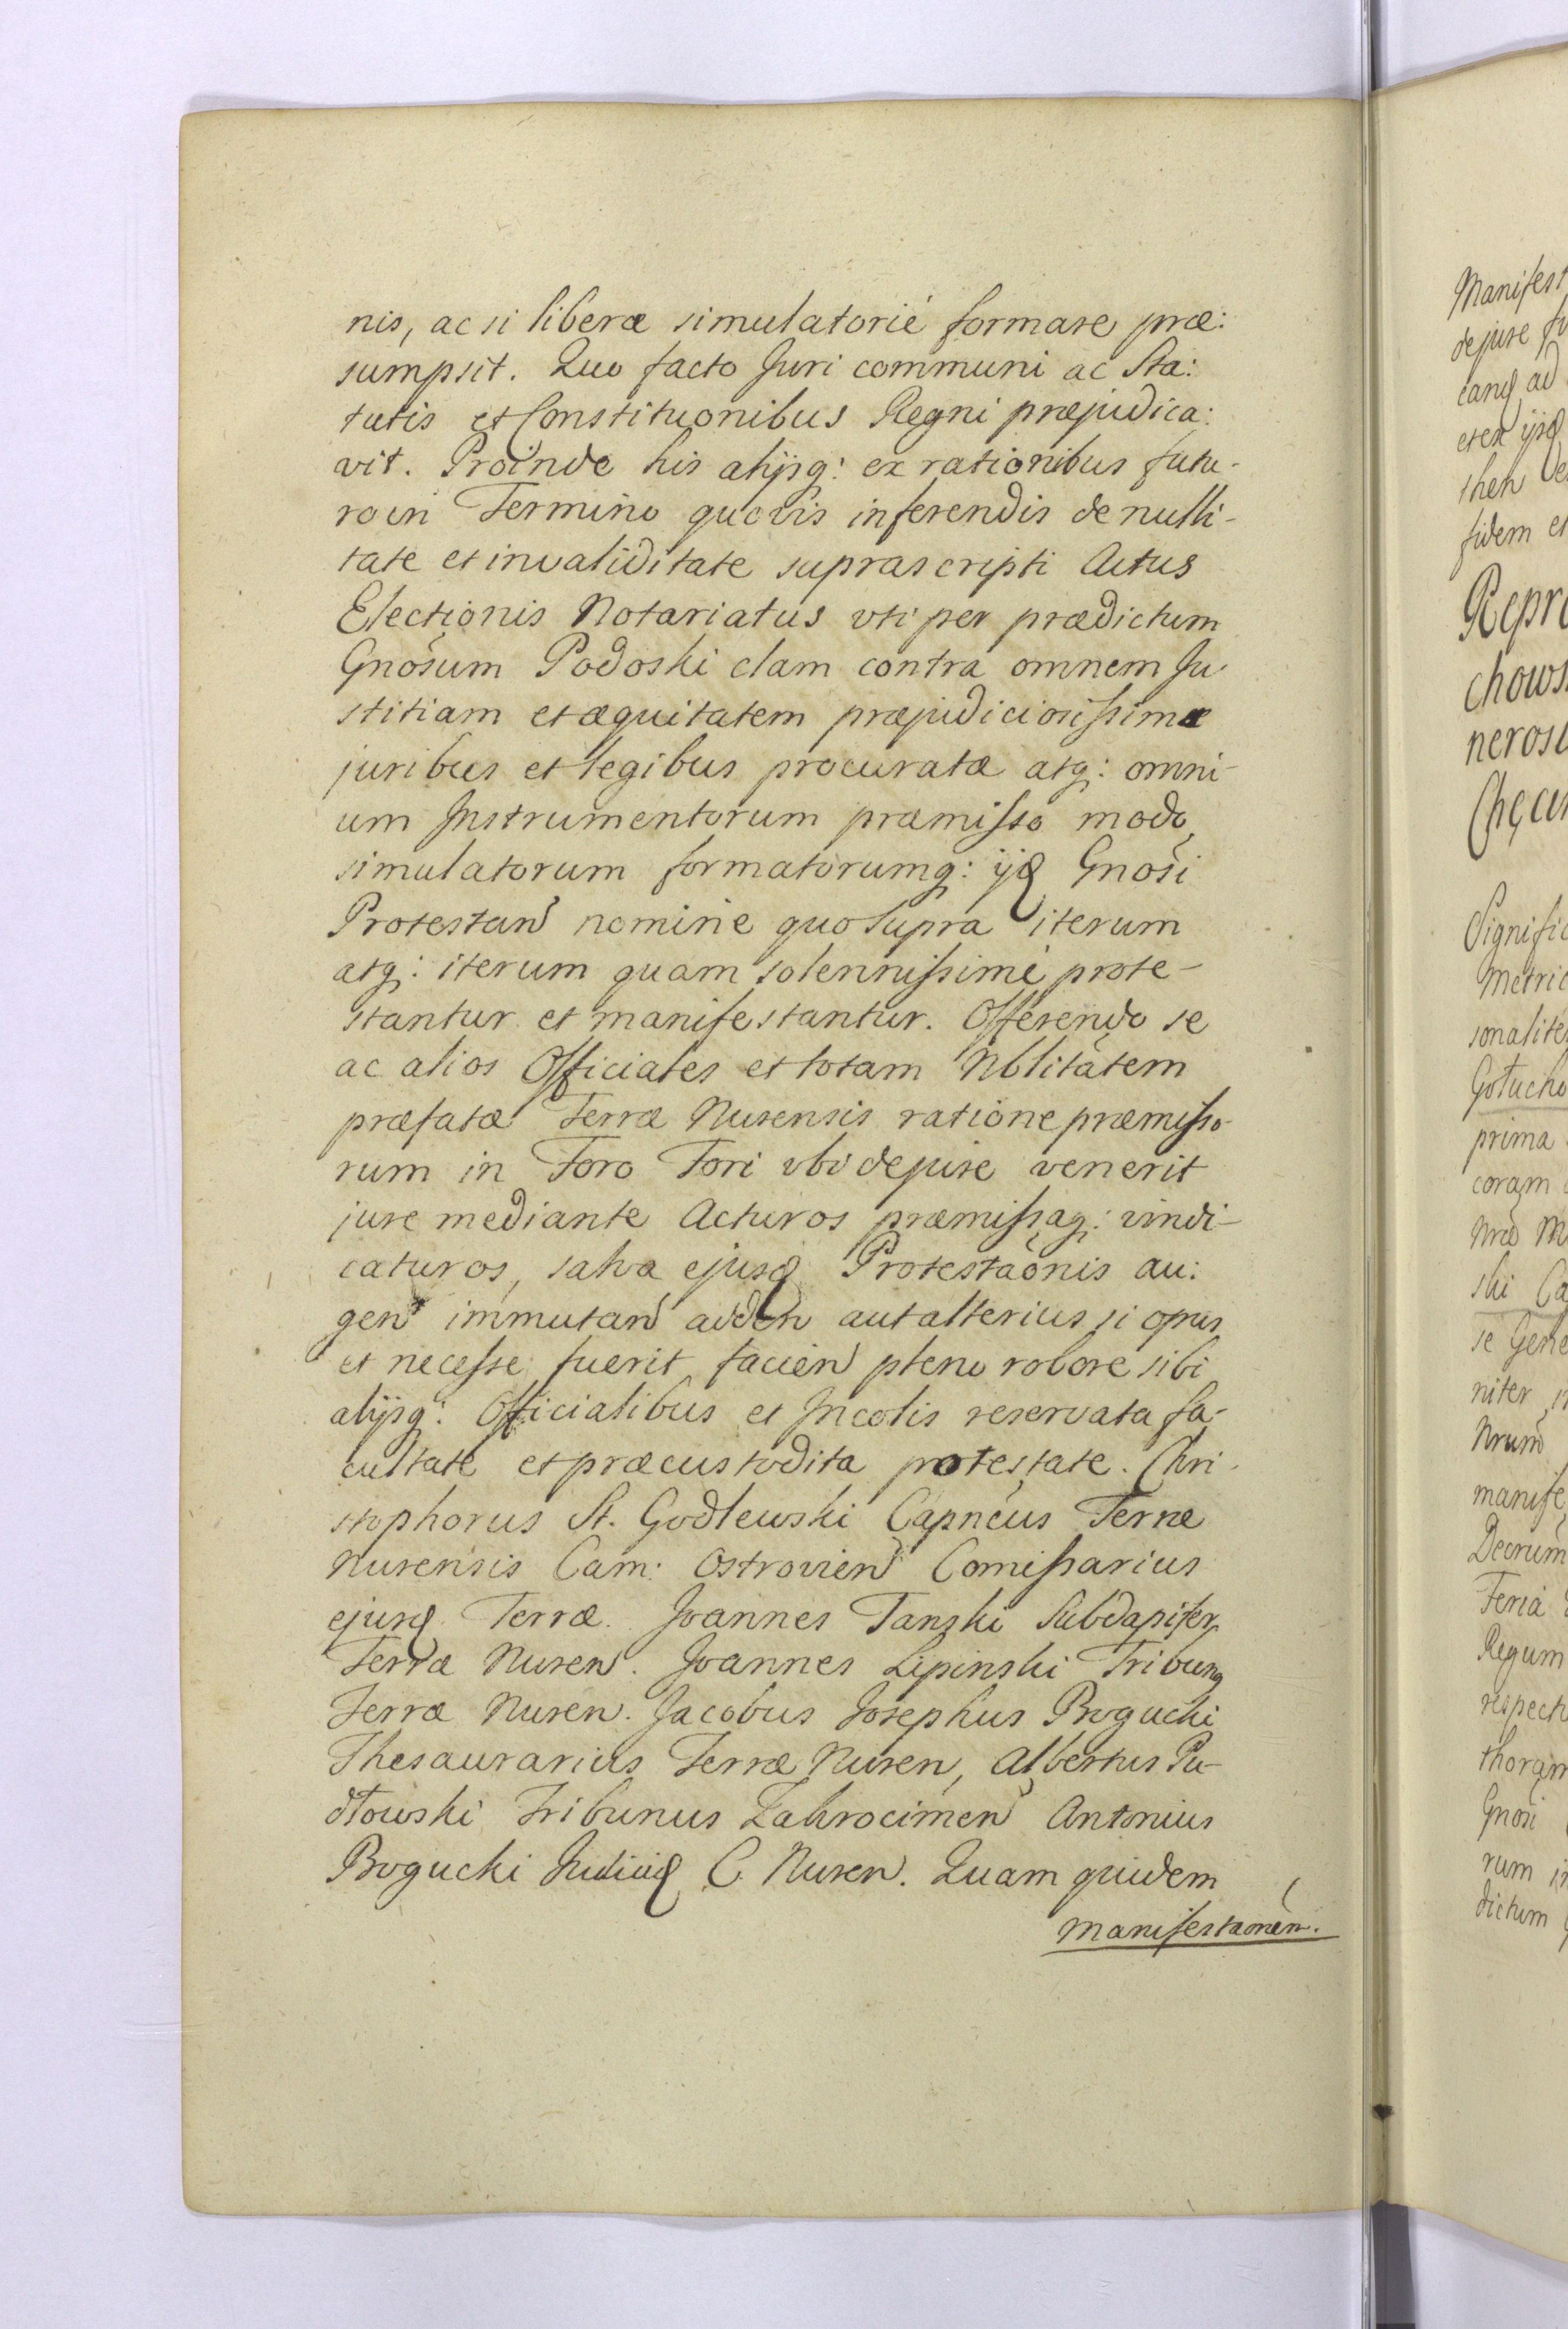 nis, ac si liberæ simulatoriè formare præ:
sumpsit. Quo facto Juri communi ac Sta:
tutis et Constituonibus Regni præjudica:
vit. Proinde his alijsq: ex rationibus futu-
ro in Termino quovis inferendis de nulli-
tate et invaliditate suprascripti Actus
Electionis Notariatus vti per prædictum
Gnosum Podoski clam contra omnem Ju
stitiam et æquitatem præjudiciosissimæ
juribus et legibus procuratæ atq: omni-
um Instrumentorum præmisso modo
simulatorum formatorumq: ijd Gnosi
Protestan nomine quo supra iterum
atq: iterum quam solennissimè prote-
stantur et manifestantur. Offerendo se
ac alios Officiales et totam Nblitatem
præfatæ Terræ Nurensis ratione præmisso-
rum in Foro Fori vbi de jure venerit
jure mediante Acturos præmissaq: vindi-
caturos, salva ejusd Protestaonis au:
gen immutan adden aut alterius si opus
et necesse fuerit facien pleno robore sibi
alijsq: Officialibus et Incolis reservata fa-
cultate et præcustodita protestate. Chri-
stophorus St. Godlewski Capneus Terræ
Nurensis Cam: Ostrovien Comissarius
ejusd Terræ. Joannes Tanski Subdapifer
Terræ Nuren. Joannes Lipinski Tribunq
Terræ Nuren. Jacobus Josephus Bogucki
Thesaurarius Terræ Nuren, Albertus Pu-
dłowski Tribunus Zakrocimen Antonius
Bogucki C. Nuren. Quam quidem
manifestaonem.
Manifest
de jure
ad
fidem et
Repre
chows
neroso
Signific
Metric
sonalite
Gołucho
prima
coram
Nræ M
ski Ca
se Gene
niter
Nrum
manife
Decrum
Feria
Regum
respectu
thoram
Gnosi
rum in
dictum